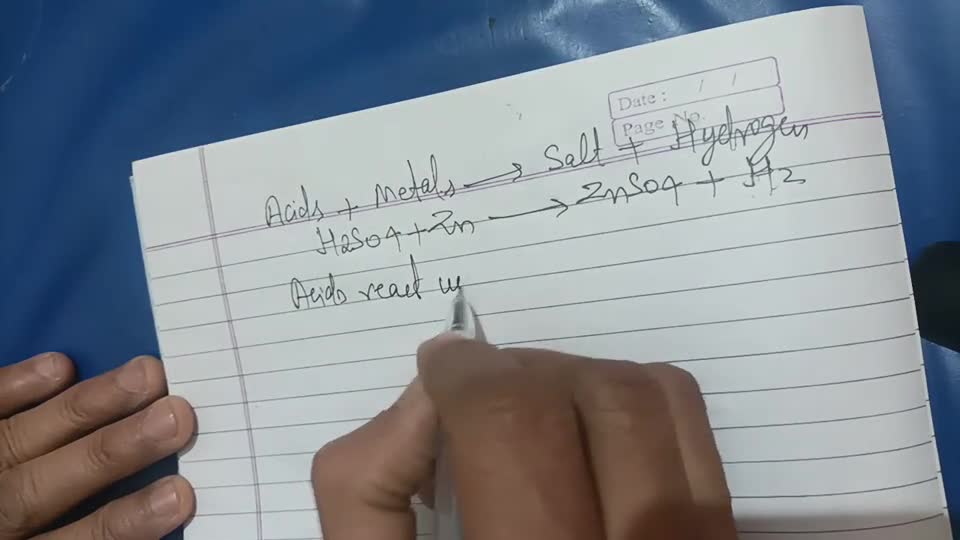 Date : / /
Page No.
Acids + Metals → Salt + Hydrogen
H2SO4 + Zn → ZnSO4 + H2
Acids react w